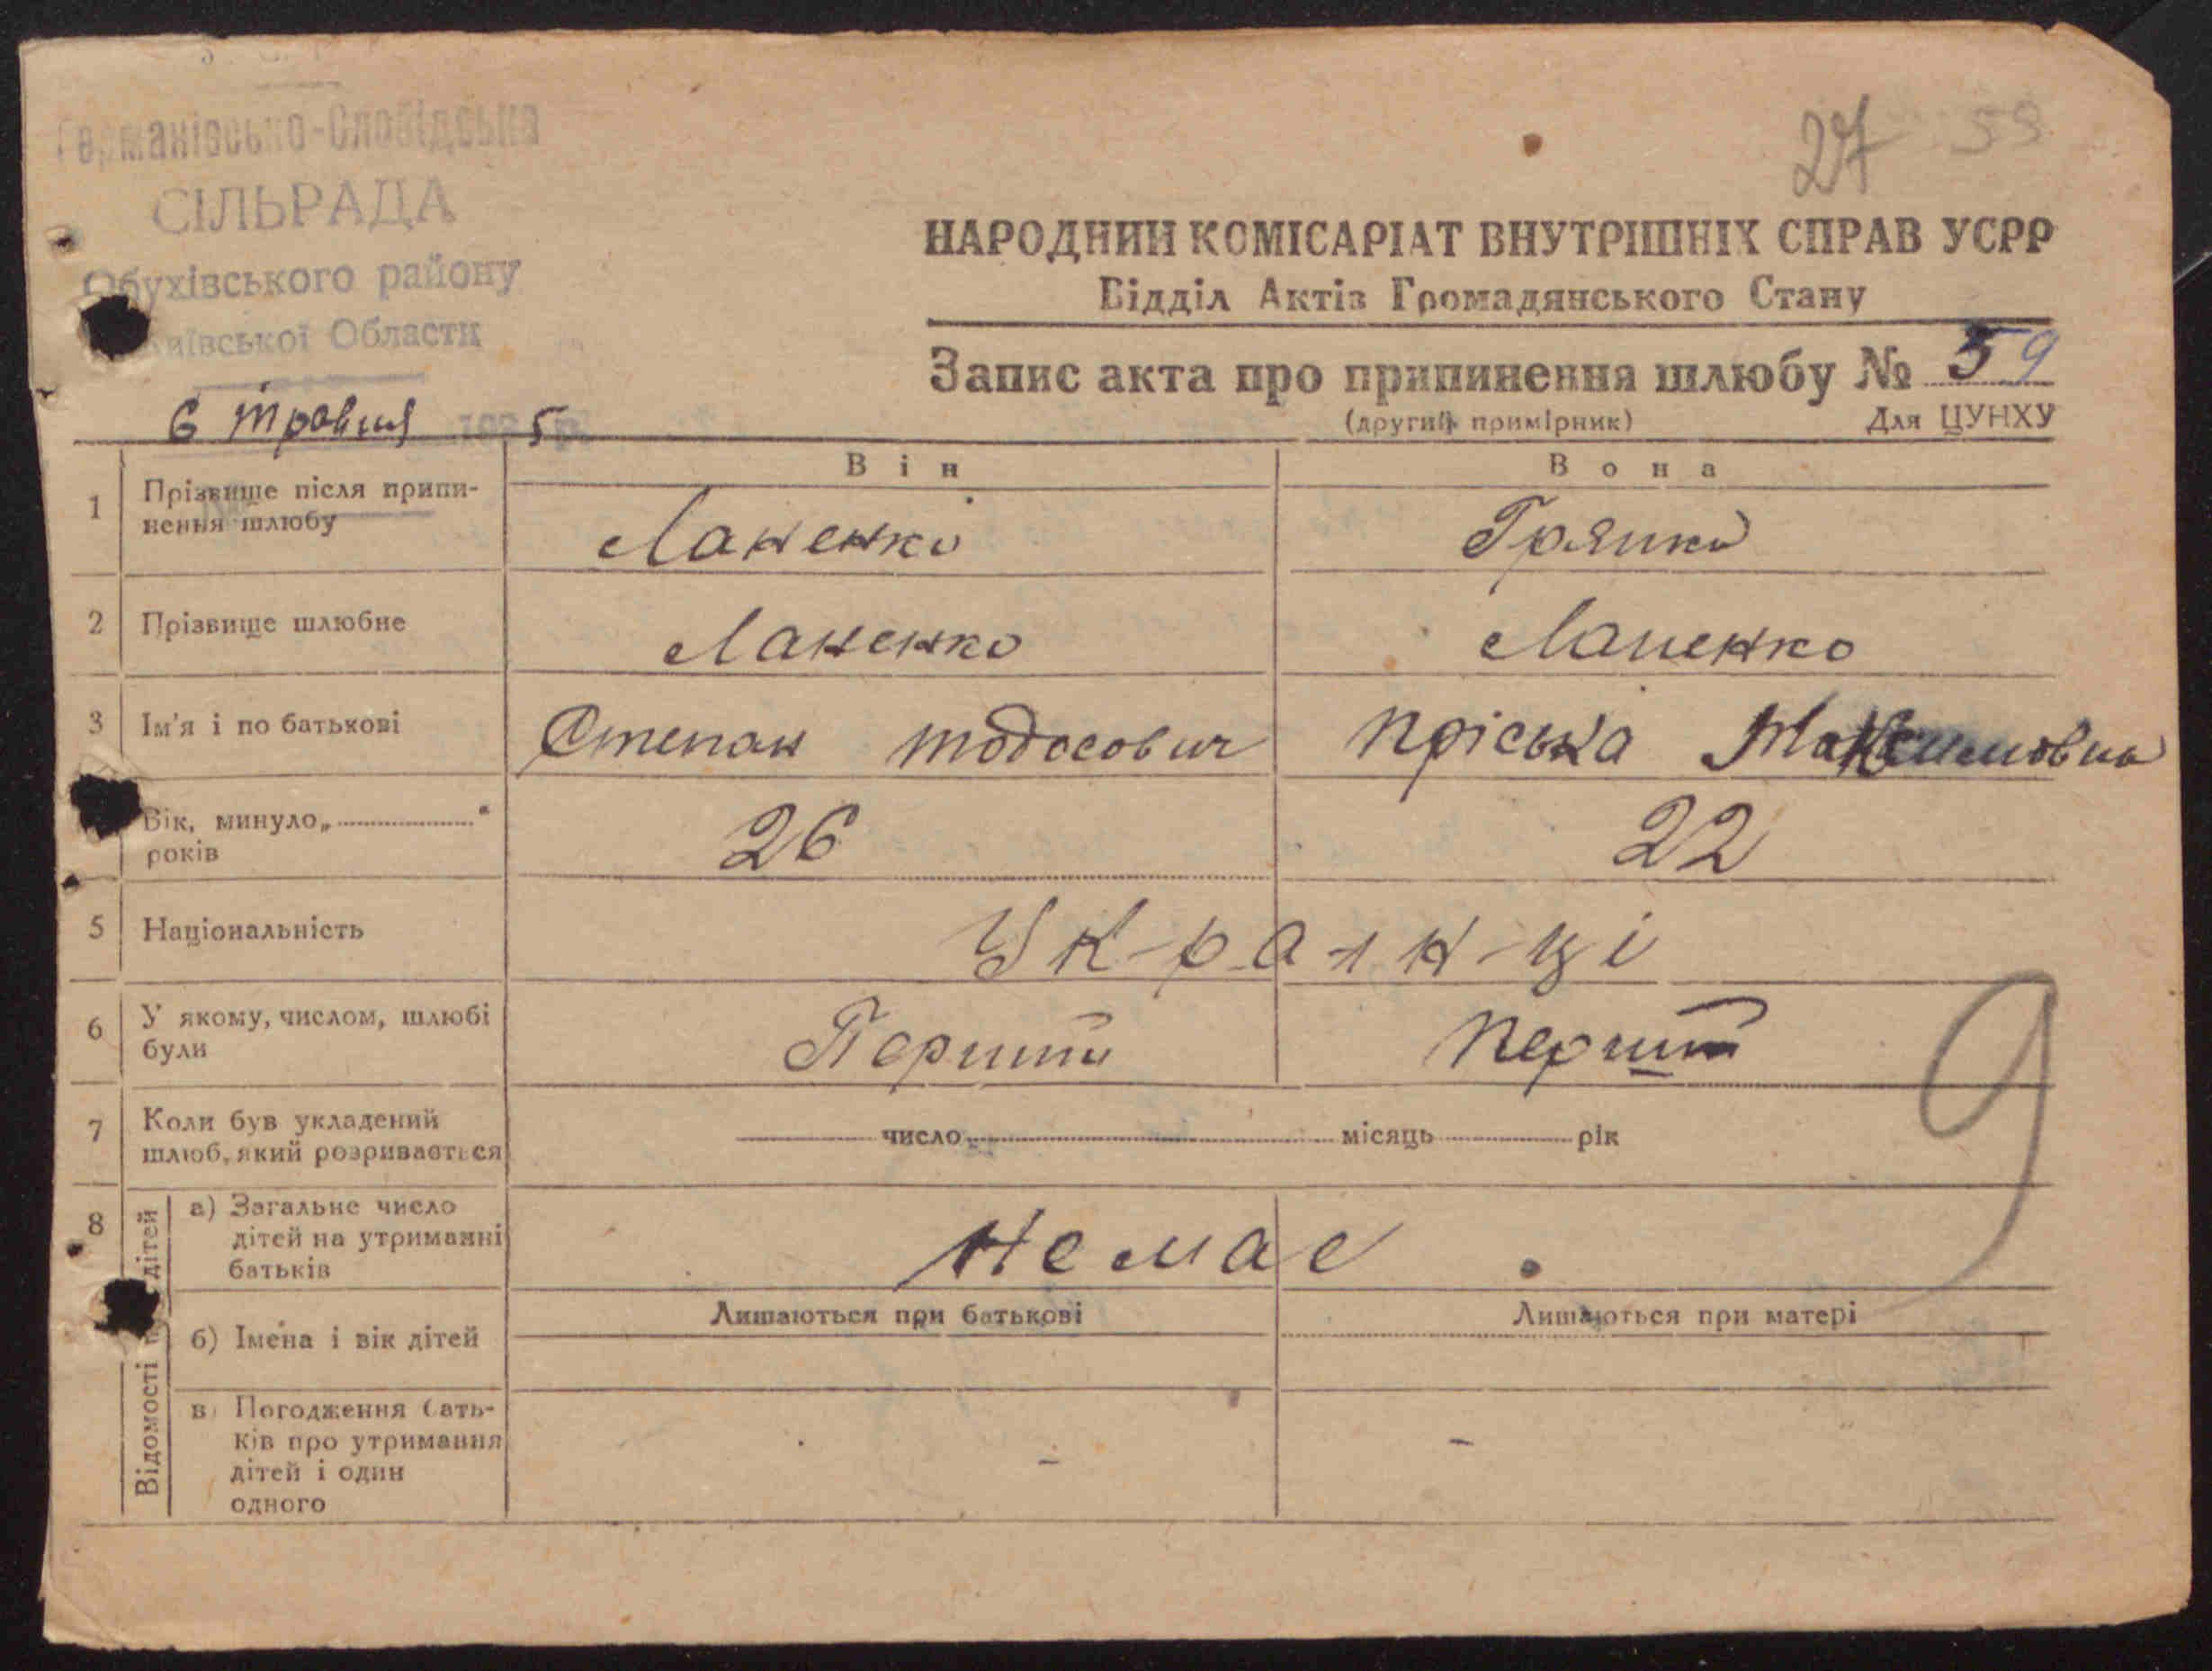 Германівсько-Слобідська
СІЛЬРАДА
Обухівського району
Київської Области
6 травня 1935 р.
27 59
НАРОДНИЙ КОМІСАРІАТ ВНУТРІШНІХ СПРАВ УСРР
Відділ Актів Громадянського Стану
Запис акта про припинення шлюбу № 59
(другий примірник) Для ЦУНХУ
Він Вона
1 Прізвище після припинення шлюбу Ланенко
2 Прізвище шлюбне Ланенко Ланенко
3 Ім'я і по батькові Степан Тодосович Пріська Максимовна
Вік, минуло „ “ років 26 22
5 Національність Ук-ра-їн-ці
6 У якому, числом, шлюбі були Перший Перший
7 Коли був укладений шлюб, який розривається число місяць рік
8 Відомості дітей
а) Загальне число дітей на утриманні батьків Немае
9
Лишаються при батькові Лишаються при матері
б) Імена і вік дітей
в) Погодження батьків про утримання дітей і один одного - -